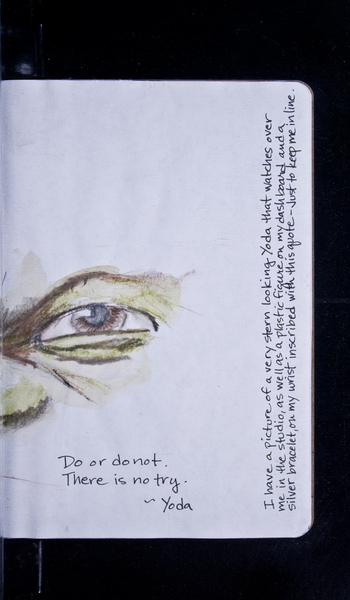 Do or do not.
There is no try.
~ Yoda
I have a picture of a very stern looking Yoda that watches over
me in the studio, as well as a plastic figure on my dashboard and a
silver bracelet, on my wrist inscribed with this quote - just to keep me in line.